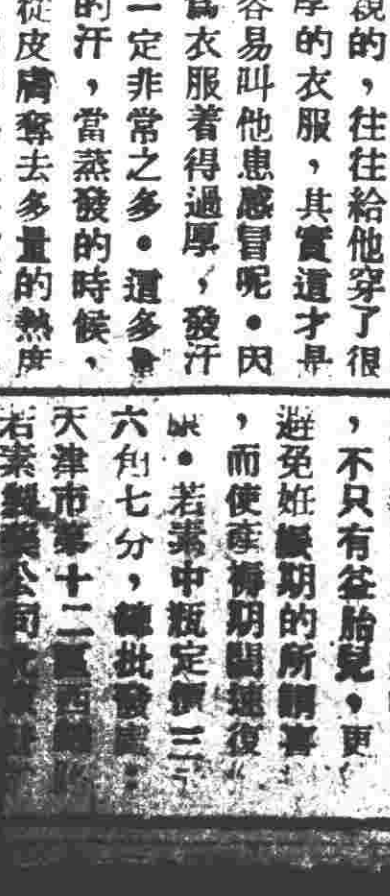 親的，往往給他穿了很
厚的衣服，其實這才是
容易叫他患感冒呢。因
爲衣服着得過厚，發汗
一定非常之多。這多量
的汗，當蒸發的時候，
從皮膚奪去多量的熱度
，不只有益胎兒，更
避免妊娠期的所謂害
，而使產褥期間速復
。若素中瓶定價三
六角七分，總批發處
天津市第十二區西
若素製藥公司